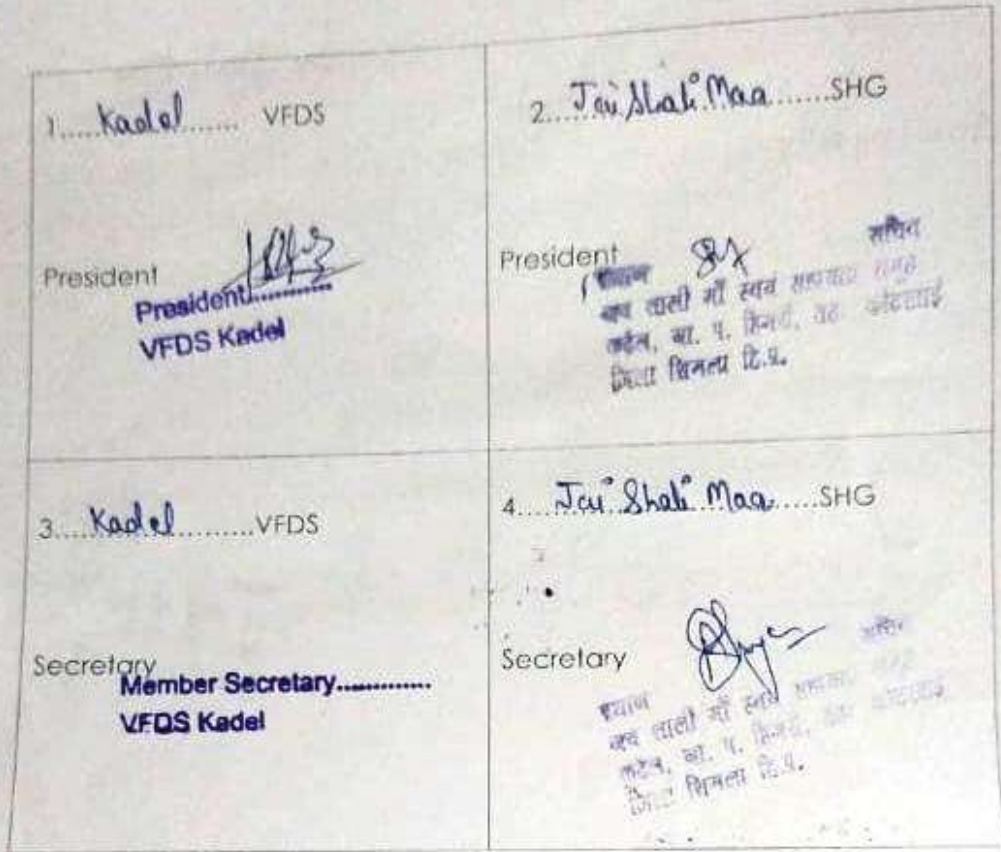 1.....Kadel....... VFDS
President
President............
VFDS Kadel
2.......Jai Shali Maa.......SHG
President
प्रधान सचिव
जय शाली माँ स्वयं सहायता समूह
कडेल, ग्रा. प. कोटखाई
जिला शिमला हि.प्र.
3.....Kadel..........VFDS
Secretary
Member Secretary.............
VFDS Kadel
4.....Jai Shali Maa......SHG
Secretary
प्रधान सचिव
जय शाली माँ स्वयं
कडेल, ग्रा. प. कोटखाई
जिला शिमला हि.प्र.